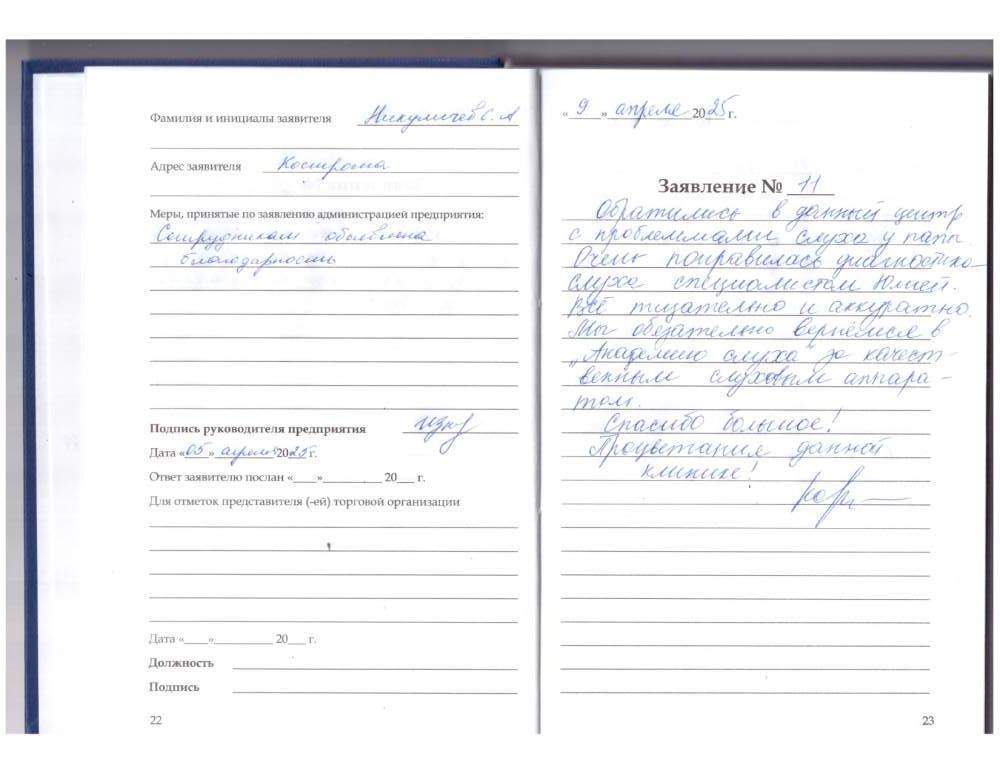 Фамилия и инициалы заявителя Никуличев С. А
Адрес заявителя Кострома
Меры, принятые по заявлению администрацией предприятия:
Сотрудникам объявлена
благодарность
Подпись руководителя предприятия
Дата «05» апреля 2025 г.
Ответ заявителю послан «____»__________ 20___ г.
Для отметок представителя (-ей) торговой организации
Дата «____»__________ 20___ г.
Должность
Подпись
22
« 9 » апреля 2025 г.
Заявление № 11
Обратились в данный центр
с проблеммами слуха у папы.
Очень понравилась диагностика
слуха специалистом Юлией.
Всё тщательно и аккуратно.
Мы обезательно вернёмися в
„Академию слуха" за качест-
венным слуховым аппара-
том.
Спасибо большое!
Процветания данной
клинике!
23